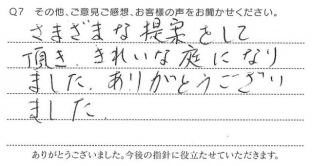 Q7 その他、ご意見ご感想、お客様の声をお聞かせください。
さまざまな提案をして
頂き、きれいな庭になり
ました。ありがとうござい
ました。
ありがとうございました。今後の指針に役立たせていただきます。